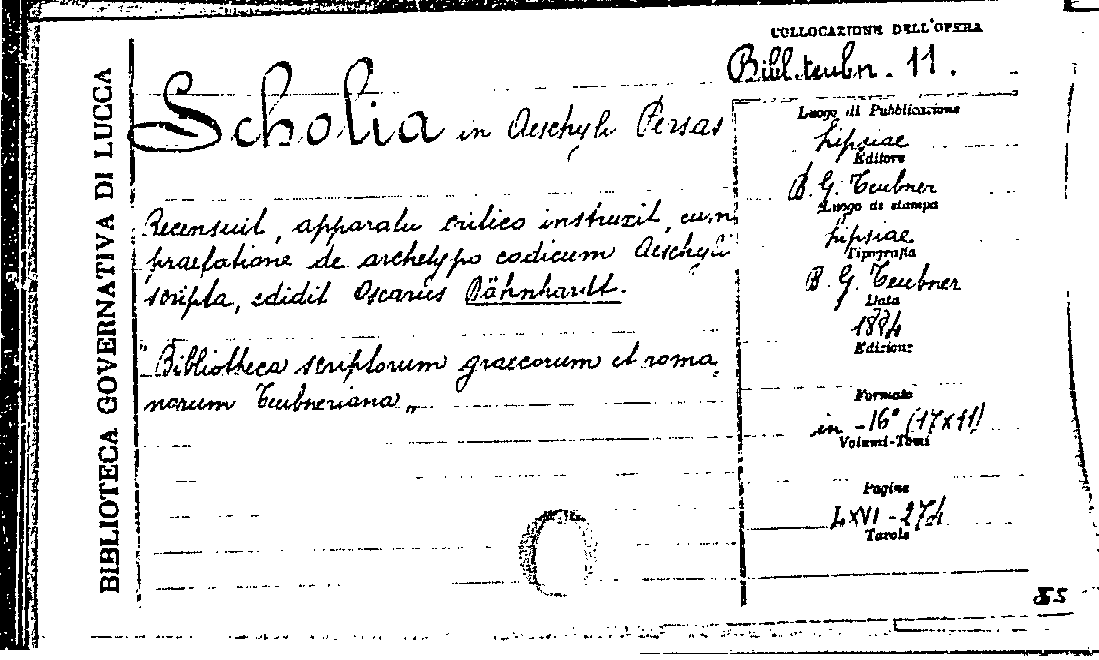 BIBLIOTECA GOVERNATIVA DI LUCCA
COLLOCAZIONE DELL'OPERA
Bibl. teubn. 11.
Scholia in Aeschyli Persas
Recensuit, apparatu critico instruxit, cum
praefatione de archetypo codicum Aeschyli
scripta, edidit Oscarius Dähnhardt.
"Bibliotheca scriptorum graecorum et roma
norum Teubneriana"
Luogo di Pubblicazione
Lipsiae
Editore
B. G. Teubner
Luogo di stampa
Lipsiae
Tipografia
B. G. Teubner
Data
1894
Edizione
Formato
in -16° (17x11)
Volumi-Tomi
Pagine
LXVI - 274
Tavole